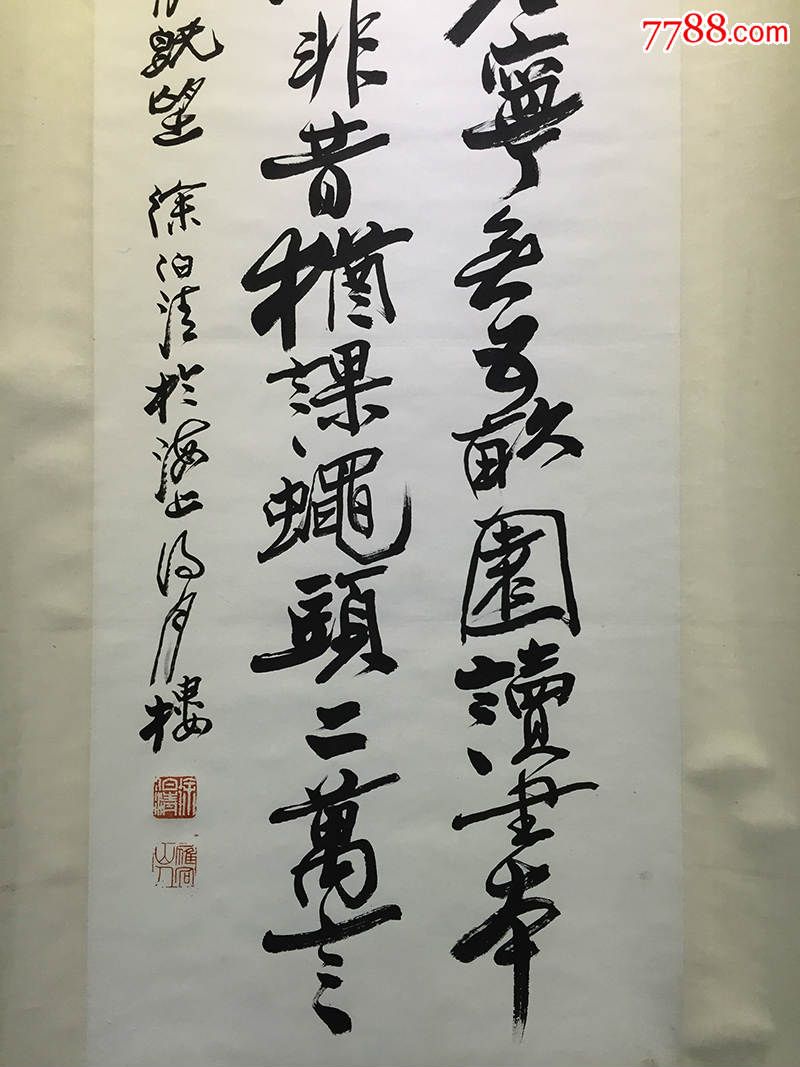 7788.com
寧無五畝園讀書本
非昔猶課蠅頭二萬言
既望 徐伯清於海上得月樓